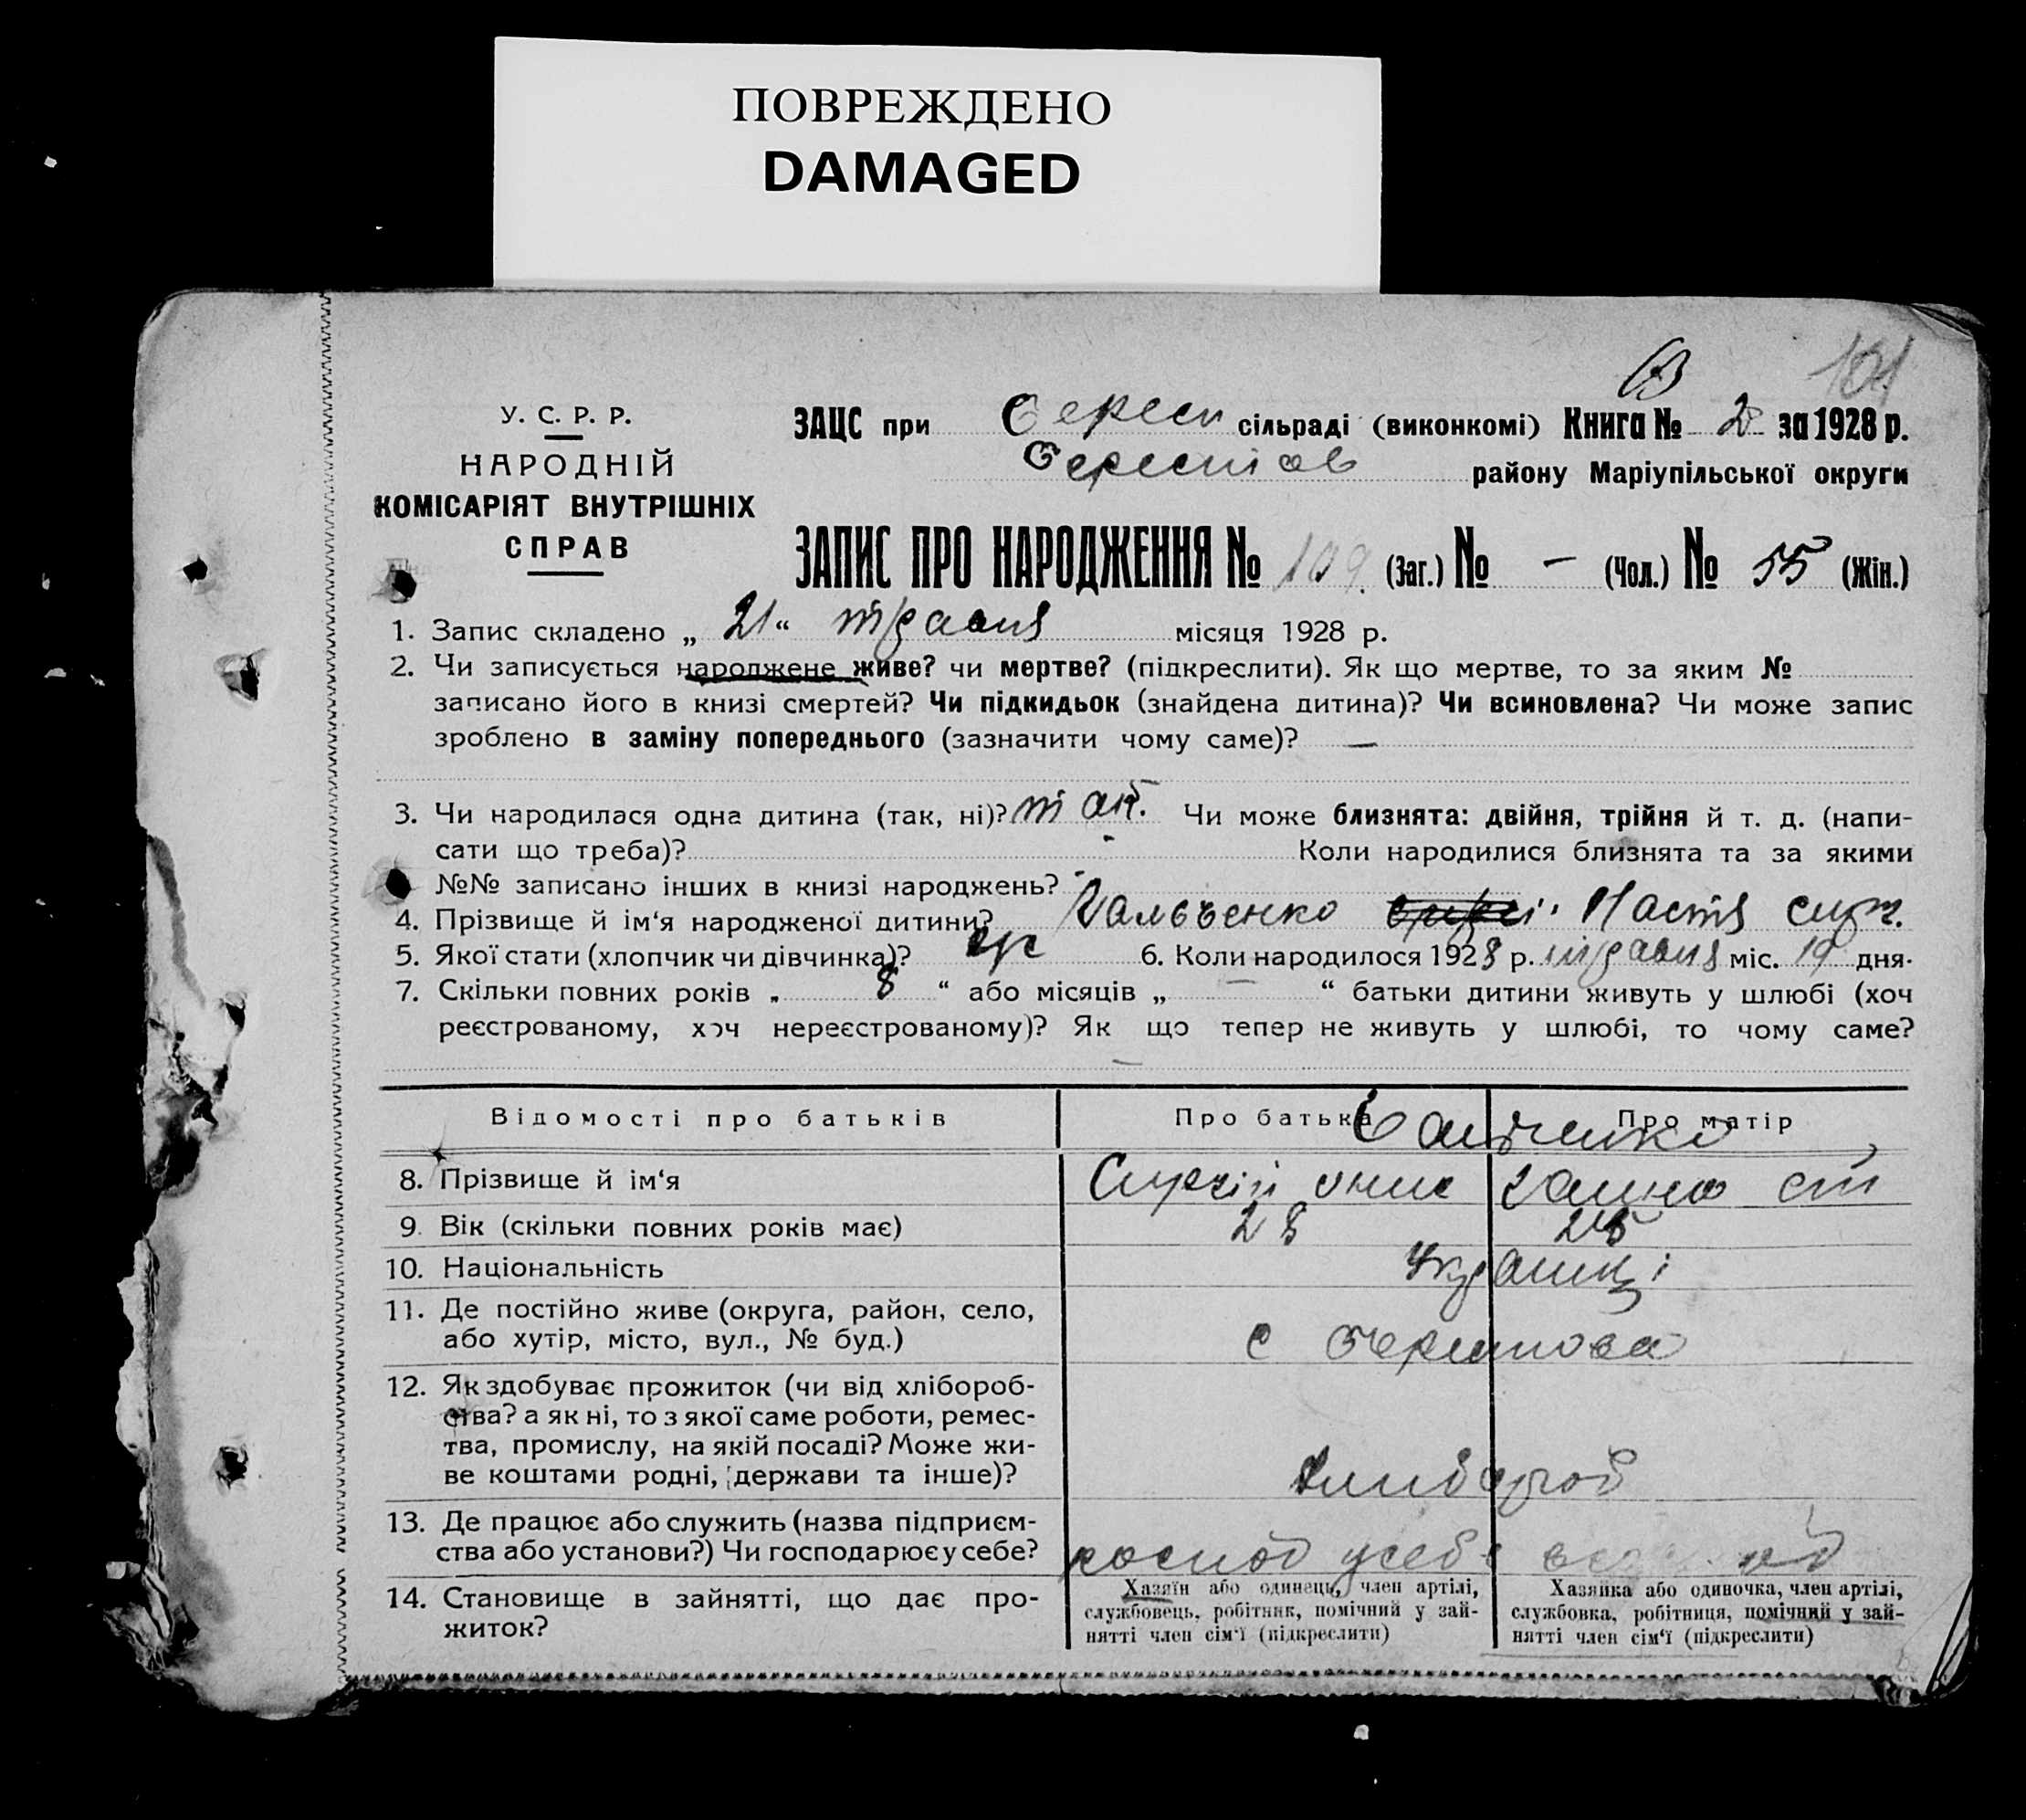 ПОВРЕЖДЕНО
DAMAGED
101
У. С. Р. Р.
НАРОДНІЙ
КОМІСАРІЯТ ВНУТРІШНІХ
СПРАВ
ЗАЦС при сільраді (виконкомі) Книга № 2 за 1928 р.
району Маріупільської округи
ЗАПИС ПРО НАРОДЖЕННЯ № 109 (Заг.) № — (Чол.) № 55 (Жін.)
1. Запис складено „ 21 “ травня місяця 1928 р.
2. Чи записується народжене живе? чи мертве? (підкреслити). Як що мертве, то за яким №
записано його в книзі смертей? Чи підкидьок (знайдена дитина)? Чи всиновлена? Чи може запис
зроблено в заміну попереднього (зазначити чому саме)? —
3. Чи народилася одна дитина (так, ні)? так. Чи може близнята: двійня, трійня й т. д. (напи-
сати що треба)? Коли народилися близнята та за якими
№№ записано інших в книзі народжень?
4. Прізвище й ім‘я народженої дитини? Настя
5. Якої стати (хлопчик чи дівчинка)? 6. Коли народилося 1928 р. травня міс. 19 дня.
7. Скільки повних років „ 8 “ або місяців „ — “ батьки дитини живуть у шлюбі (хоч
реєстрованому, хоч нереєстрованому)? Як що тепер не живуть у шлюбі, то чому саме?
—
Відомості про батьків Про батька Про матір
8. Прізвище й ім‘я
9. Вік (скільки повних років має) 28
10. Національність Украинці
11. Де постійно живе (округа, район, село,
або хутір, місто, вул., № буд.) с
12. Як здобуває прожиток (чи від хлібороб-
ства? а як ні, то з якої саме роботи, ремес-
тва, промислу, на якій посаді? Може жи-
ве коштами родні, держави та інше)?
13. Де працює або служить (назва підприєм-
ства або установи?) Чи господарює у себе?
14. Становище в зайнятті, що дає про-
житок?
Хазяїн або одинець, член артілі,
службовець, робітник, помічний у зай-
нятті член сім‘ї (підкреслити)
Хазяйка або одиночка, член артілі,
службовка, робітниця, помічний у зай-
нятті член сім‘ї (підкреслити)